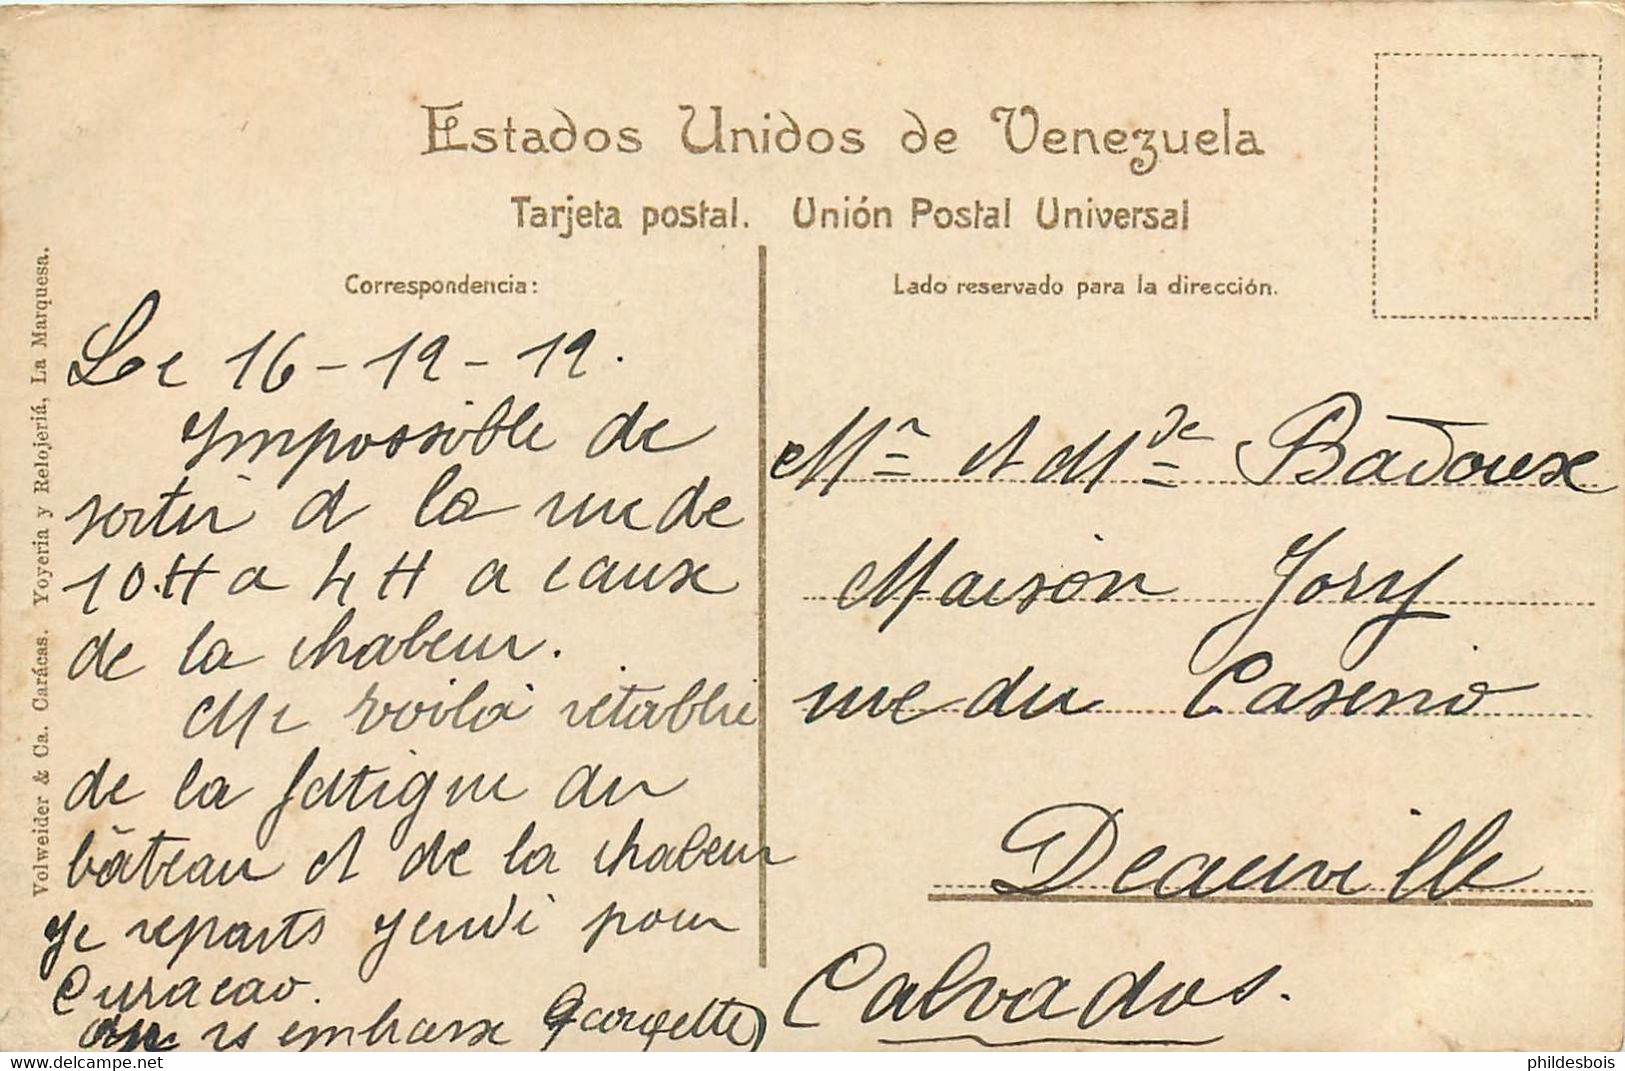 Estados Unidos de Venezuela
Tarjeta postal. Unión Postal Universal
Correspondencia:
Lado reservado para la dirección.
Volweider & Ca. Carácas. Yoyeria y Relojeriá, La Marquesa.
Le 16-12-12.
Impossible de
sortir d la rue de
10.H a 4 H a cause
de la chaleur.
Me voilà rétablie
de la fatigue du
bâteau et de la chaleur
je reparts jeudi pour
Curacao.
embrasse
Mr et Mde Badoux
Maison Jory
rue du Casino
Deauville
Calvados.
phildesbois